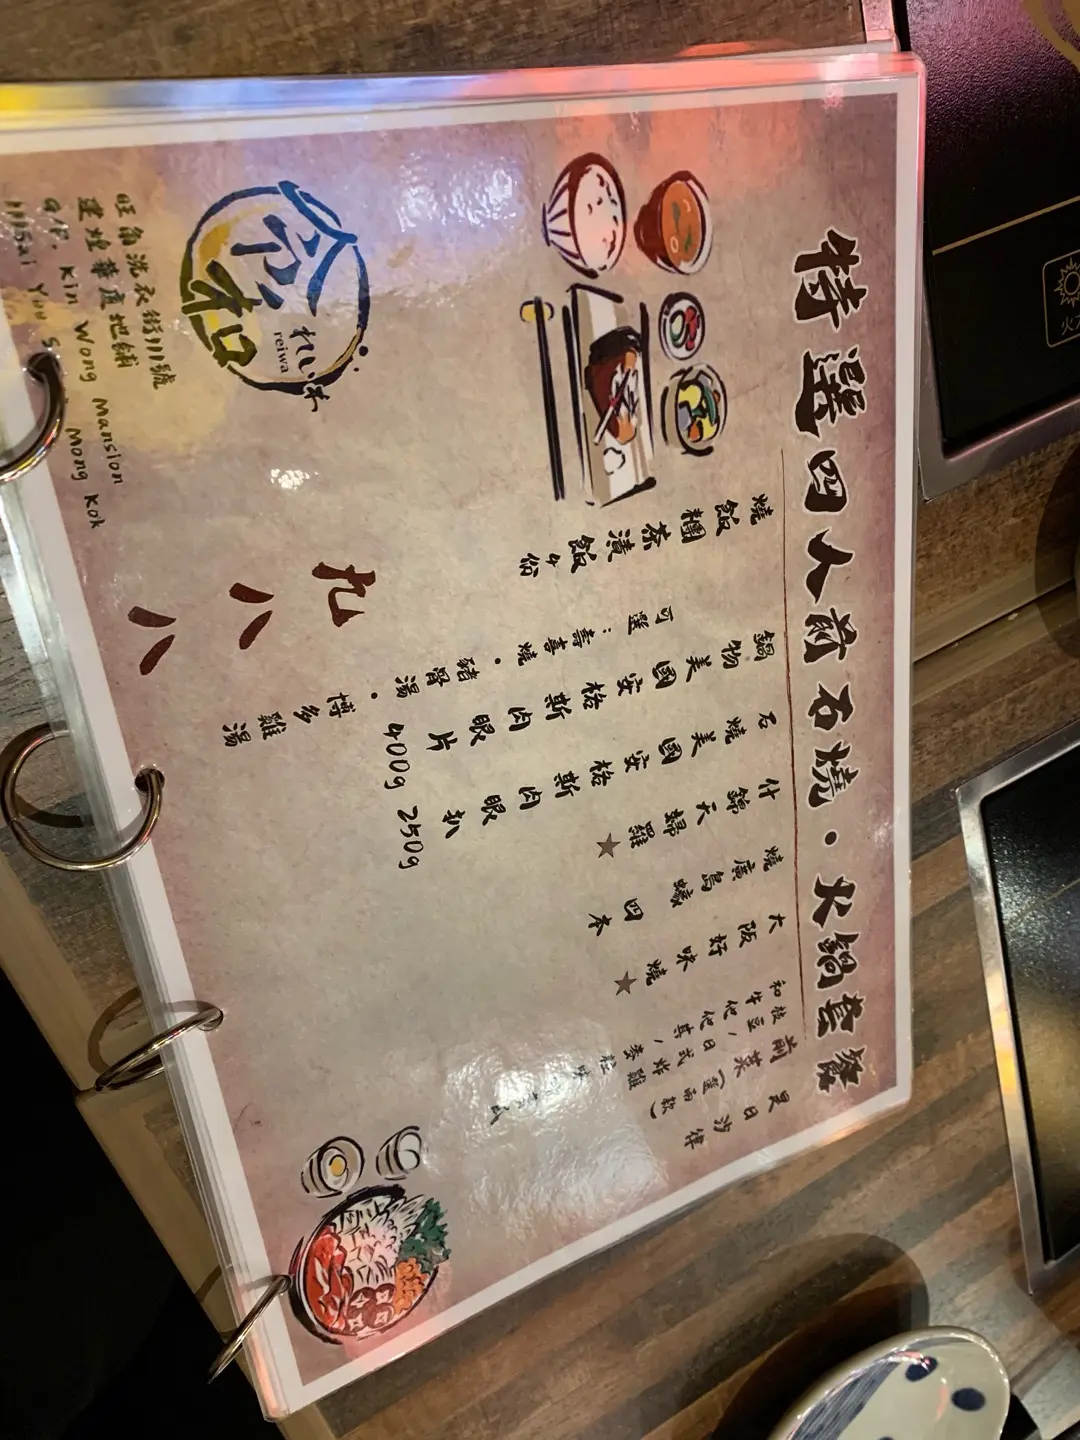 特選四人前石燒・火鍋套餐
是日沙律
前菜（選兩款）
枝豆/日式炸雞
大阪好味燒★
燒廣島蠔四本
什錦天婦羅★
石燒美國安格斯肉眼扒 250g
鍋物美國安格斯肉眼片 400g
可選：壽喜燒・豬骨湯・博多雞湯
燒飯糰茶漬飯4份
九八八
令和
れいわ
reiwa
旺角洗衣街111號
建煌華廈地鋪
G/F, Kin Wong Mansion
Mong Kok